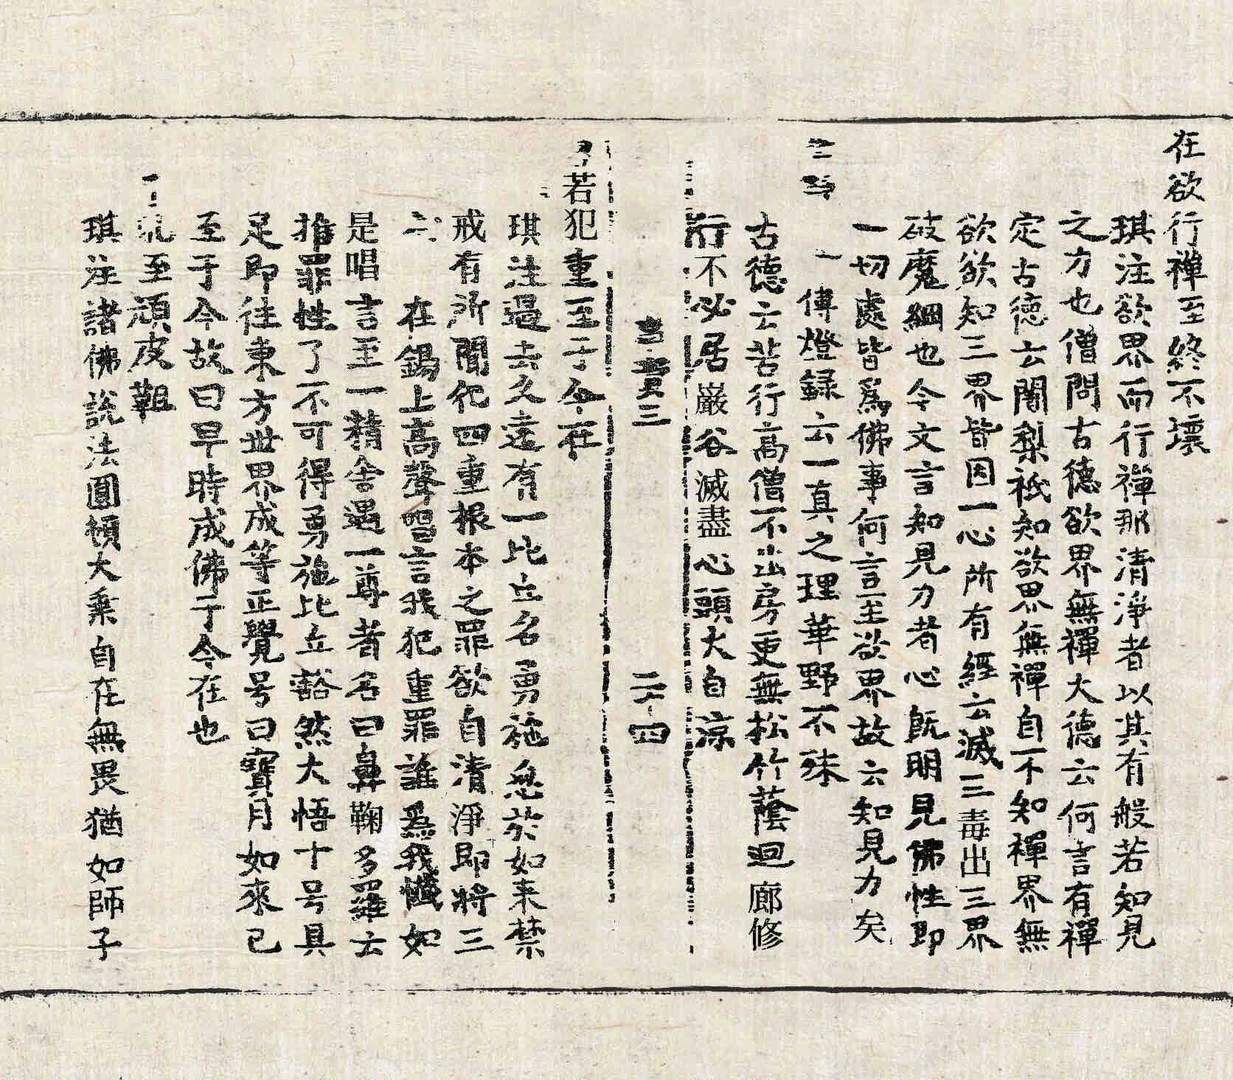 在欲行禪至終不壞
琪注欲界而行禪那清淨者以其有般若知見
之力也僧問古德欲界無禪大德云何言有禪
定古德云闍梨祇知欲界無禪自不知禪界無
欲欲知三界皆因一心所有經云滅三毒出三界
破魔網也今文言知見力者心既明見佛性即
一切處皆爲佛事何言至欲界故云知見力矣
傳燈録云一真之理華野不殊
古德云苦行高僧不出房更無松竹蔭迴廊修
行不必居巖谷滅盡心頭火自涼
三
二十四
若犯重至于今在
琪注過去久遠有一比丘名勇施忽於如来禁
戒有所闕犯四重根本之罪欲自清淨即將三
衣在錫上高聲唱言我犯重罪誰爲我懺如
是唱言至一精舍遇一尊者名曰鼻鞠多羅云
推罪性了不可得勇施比丘豁然大悟十号具
足即往東方世界成等正覺号曰寶月如來已
至于今故曰早時成佛于今在也
至頑皮靼
琪注諸佛說法圓頓大乗自在無畏猶如師子